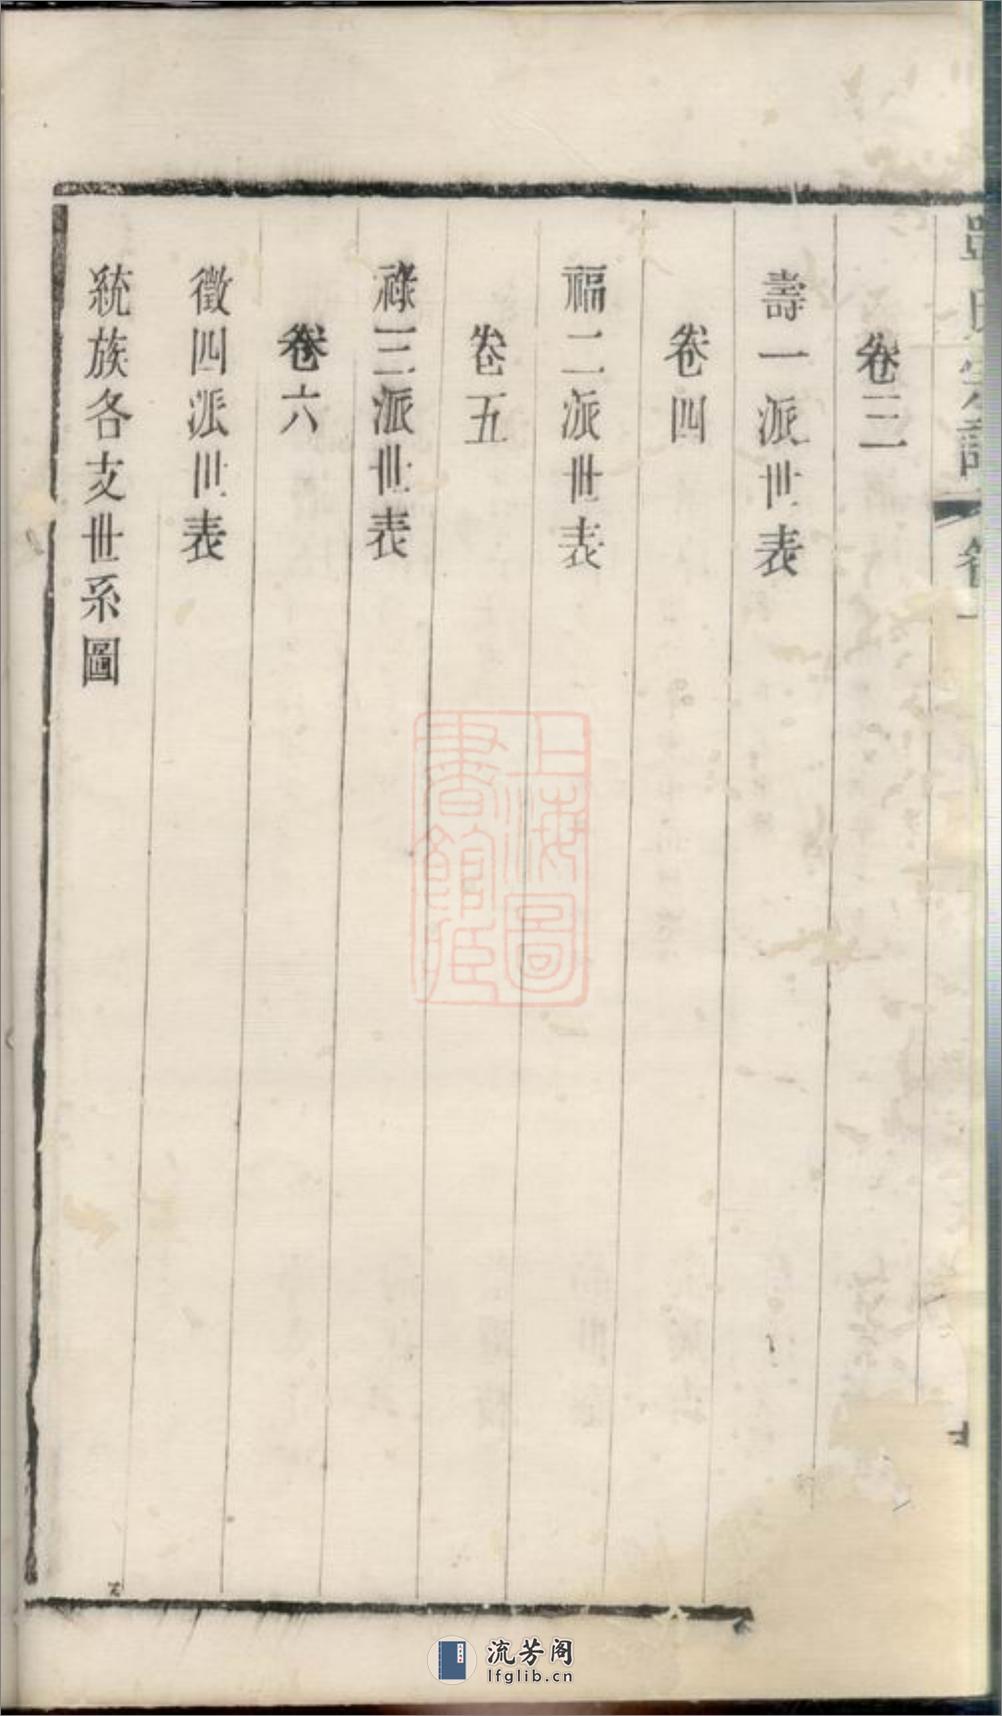 卷三
壽一派世表
卷四
福二派世表
卷五
祿三派世表
卷六
徵四派世表
統族各支世系圖
上海圖
書館藏
流芳阁
lfglib.cn